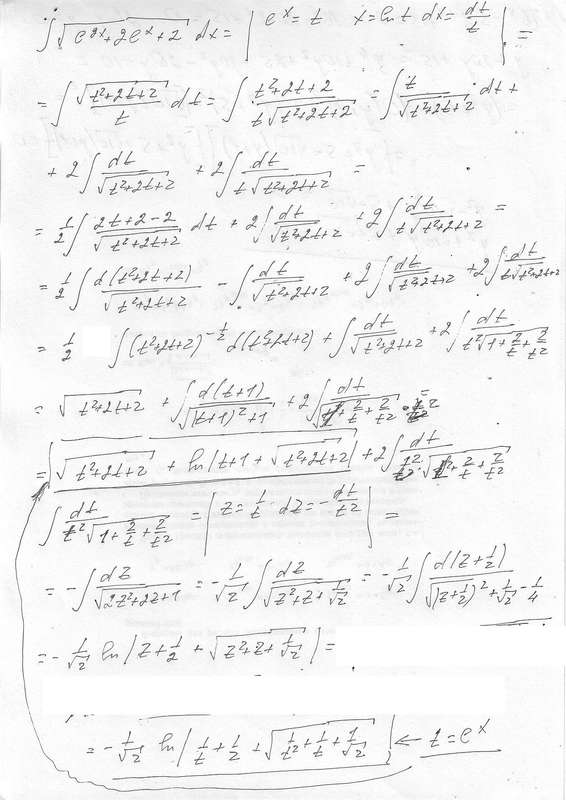 ∫ √(e^{2x}+2e^x+2) dx = | e^x = t   x = ln t   dx = dt/t | =
= ∫ √(t²+2t+2)/t dt = ∫ (t²+2t+2)/(t√(t²+2t+2)) = ∫ t/√(t²+2t+2) dt +
+ 2∫ dt/√(t²+2t+2) + 2∫ dt/(t√(t²+2t+2)) =
= 1/2 ∫ (2t+2-2)/√(t²+2t+2) dt + 2∫ dt/√(t²+2t+2) + 2∫ dt/(t√(t²+2t+2)) =
= 1/2 ∫ d(t²+2t+2)/√(t²+2t+2) - ∫ dt/√(t²+2t+2) + 2∫ dt/√(t²+2t+2) + 2∫ dt/(t√(t²+2t+2))
= 1/2 ∫ (t²+2t+2)^{-1/2} d(t²+2t+2) + ∫ dt/√(t²+2t+2) + 2∫ dt/(t²√(1+2/t+2/t²))
= √(t²+2t+2) + ∫ d(t+1)/√((t+1)²+1) + 2∫ dt/(√(1+2/t+2/t²)·t²) =
= √(t²+2t+2) + ln|t+1+√(t²+2t+2)| + 2∫ dt/(t²·√(1+2/t+2/t²))
∫ dt/(t²√(1+2/t+2/t²)) = | z = 1/t   dz = -dt/t² | =
= -∫ dz/√(2z²+2z+1) = -1/√2 ∫ dz/√(z²+z+1/√2) = -1/√2 ∫ d(z+1/2)/√((z+1/2)²+1/√2-1/4)
= -1/√2 ln|z+1/2+√(z²+z+1/√2)| =
= -1/√2 ln|1/t+1/2+√(1/t²+1/t+1/√2)| ← t = e^x